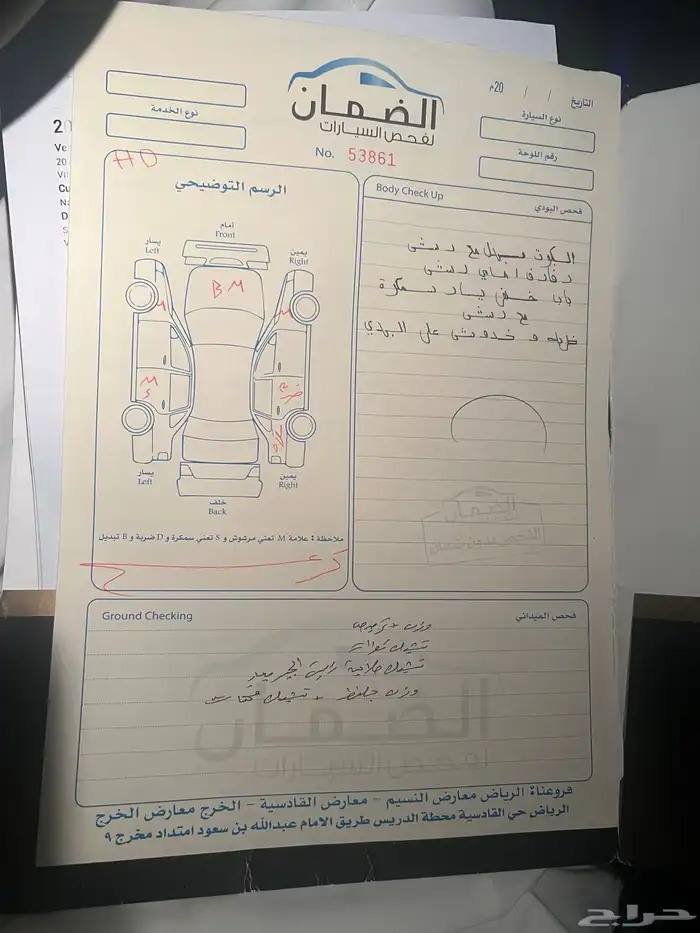 الضمان
لفحص السيارات
No. 53861
التاريخ / / 20م
نوع السيارة
رقم اللوحة
نوع الخدمة
الرسم التوضيحي
أمام
Front
يسار
Left
يمين
Right
BM
M
M
M
S
يسار
Left
يمين
Right
خلف
Back
ملاحظة : علامة M تعني مرشوش و S تعني سمكرة و D ضربة و B تبديل
Body Check Up
فحص البودي
الكبوت مبدل مع رش
رفارف امامي رش
باب خلفي يسار سمكرة
مع رش
و خدوش على البودي
الضمان
Ground Checking
فحص الميداني
الضمان
لفحص السيارات
فروعنا: الرياض معارض النسيم - معارض القادسية - الخرج معارض الخرج
الرياض حي القادسية محطة الدريس طريق الامام عبدالله بن سعود امتداد مخرج ٩
حراج